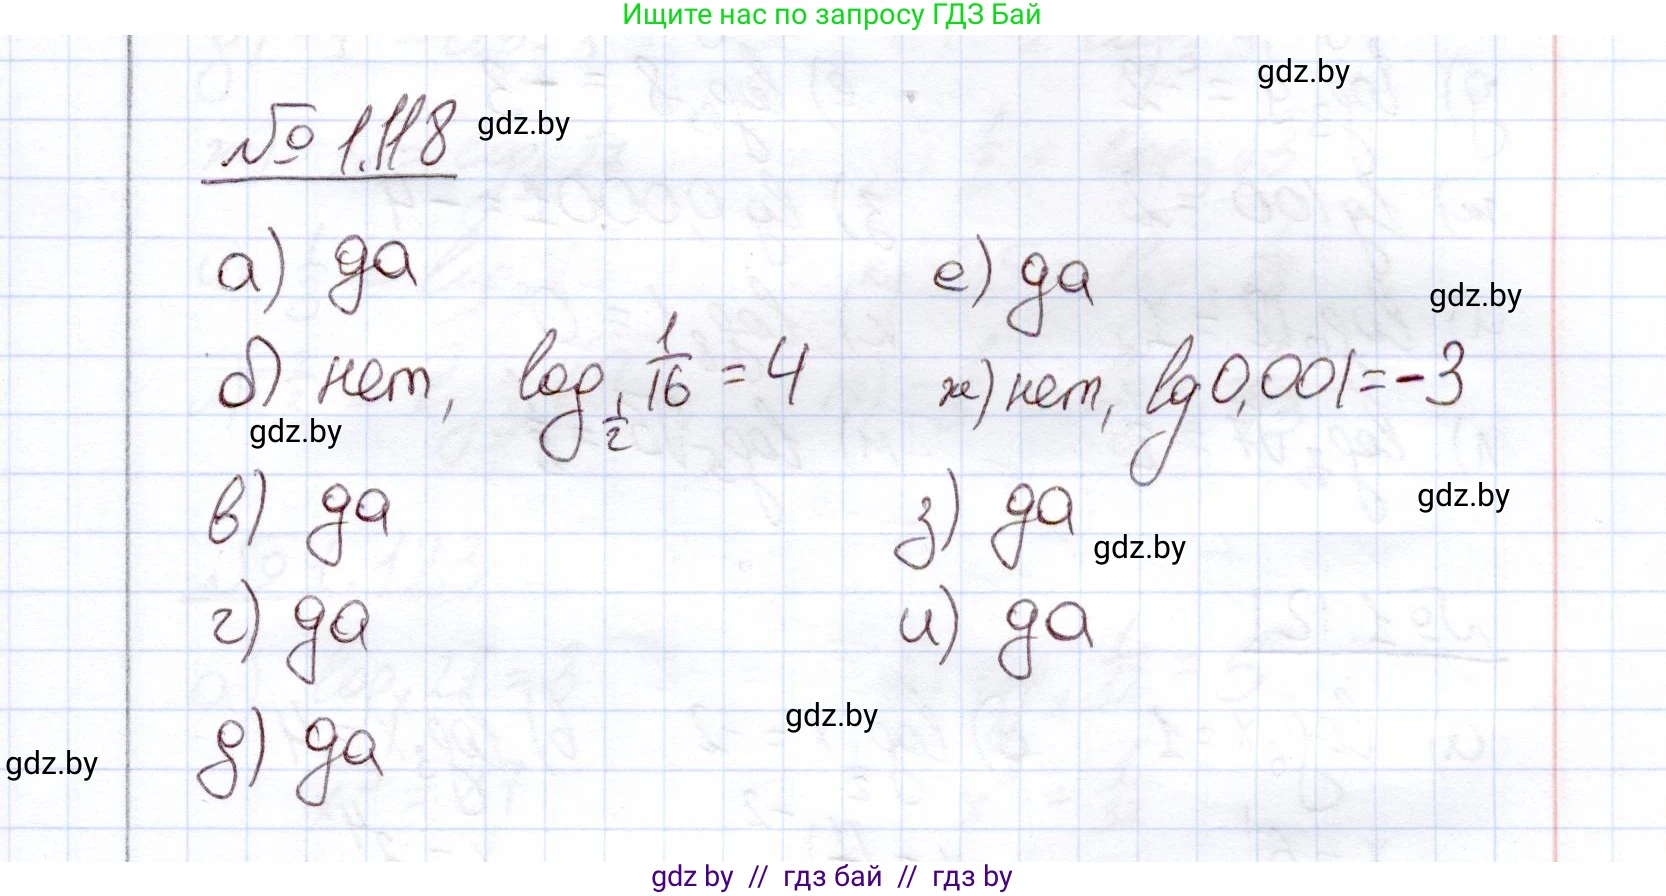 Ищите нас по запросу ГДЗ Бай
gdz.by
№ 1.118 gdz.by
а) да
е) да
gdz.by
б) нет, log_{1/2} 1/16 = 4
ж) нет, lg 0,001 = -3
gdz.by
в) да
з) да
gdz.by
gdz.by
г) да
и) да
gdz.by
д) да
gdz.by
gdz by // гдз бай // гдз by